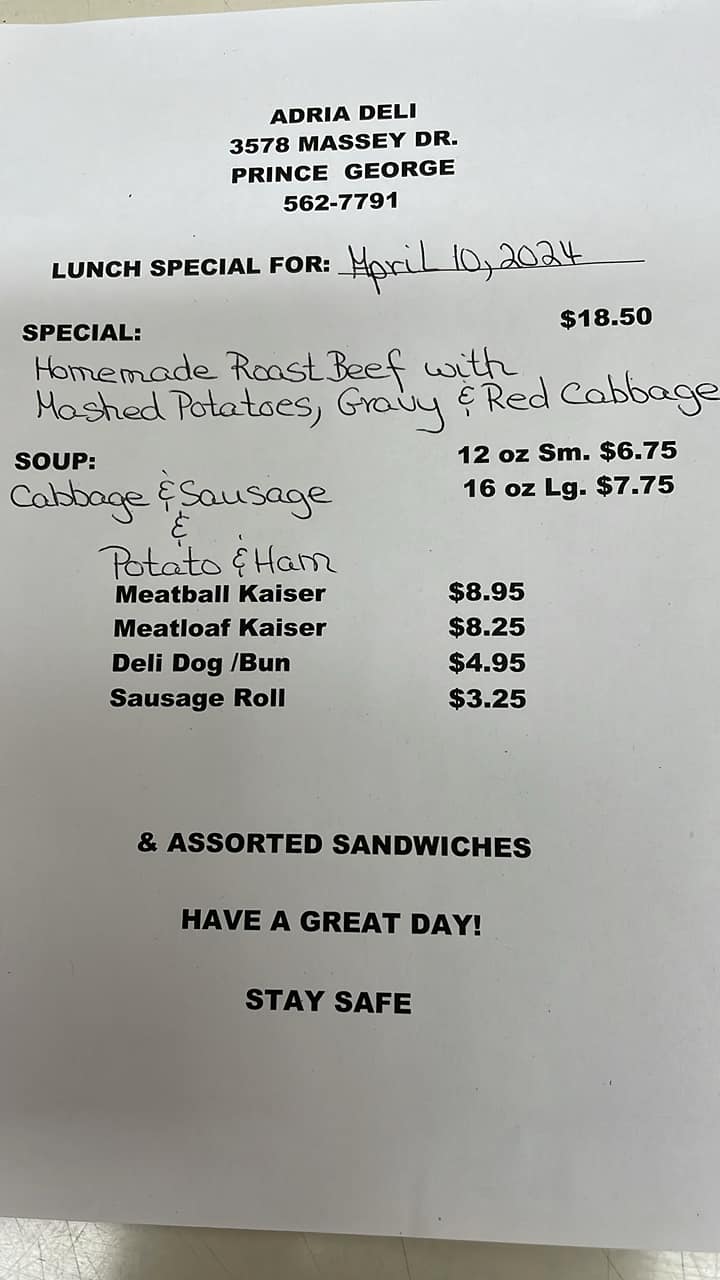 ADRIA DELI
3578 MASSEY DR.
PRINCE GEORGE
562-7791
LUNCH SPECIAL FOR: April 10, 2024
$18.50
SPECIAL:
Homemade Roast Beef with
Mashed Potatoes, Gravy & Red Cabbage
SOUP: 12 oz Sm. $6.75
Cabbage & Sausage 16 oz Lg. $7.75
&
Potato & Ham
Meatball Kaiser $8.95
Meatloaf Kaiser $8.25
Deli Dog /Bun $4.95
Sausage Roll $3.25
& ASSORTED SANDWICHES
HAVE A GREAT DAY!
STAY SAFE